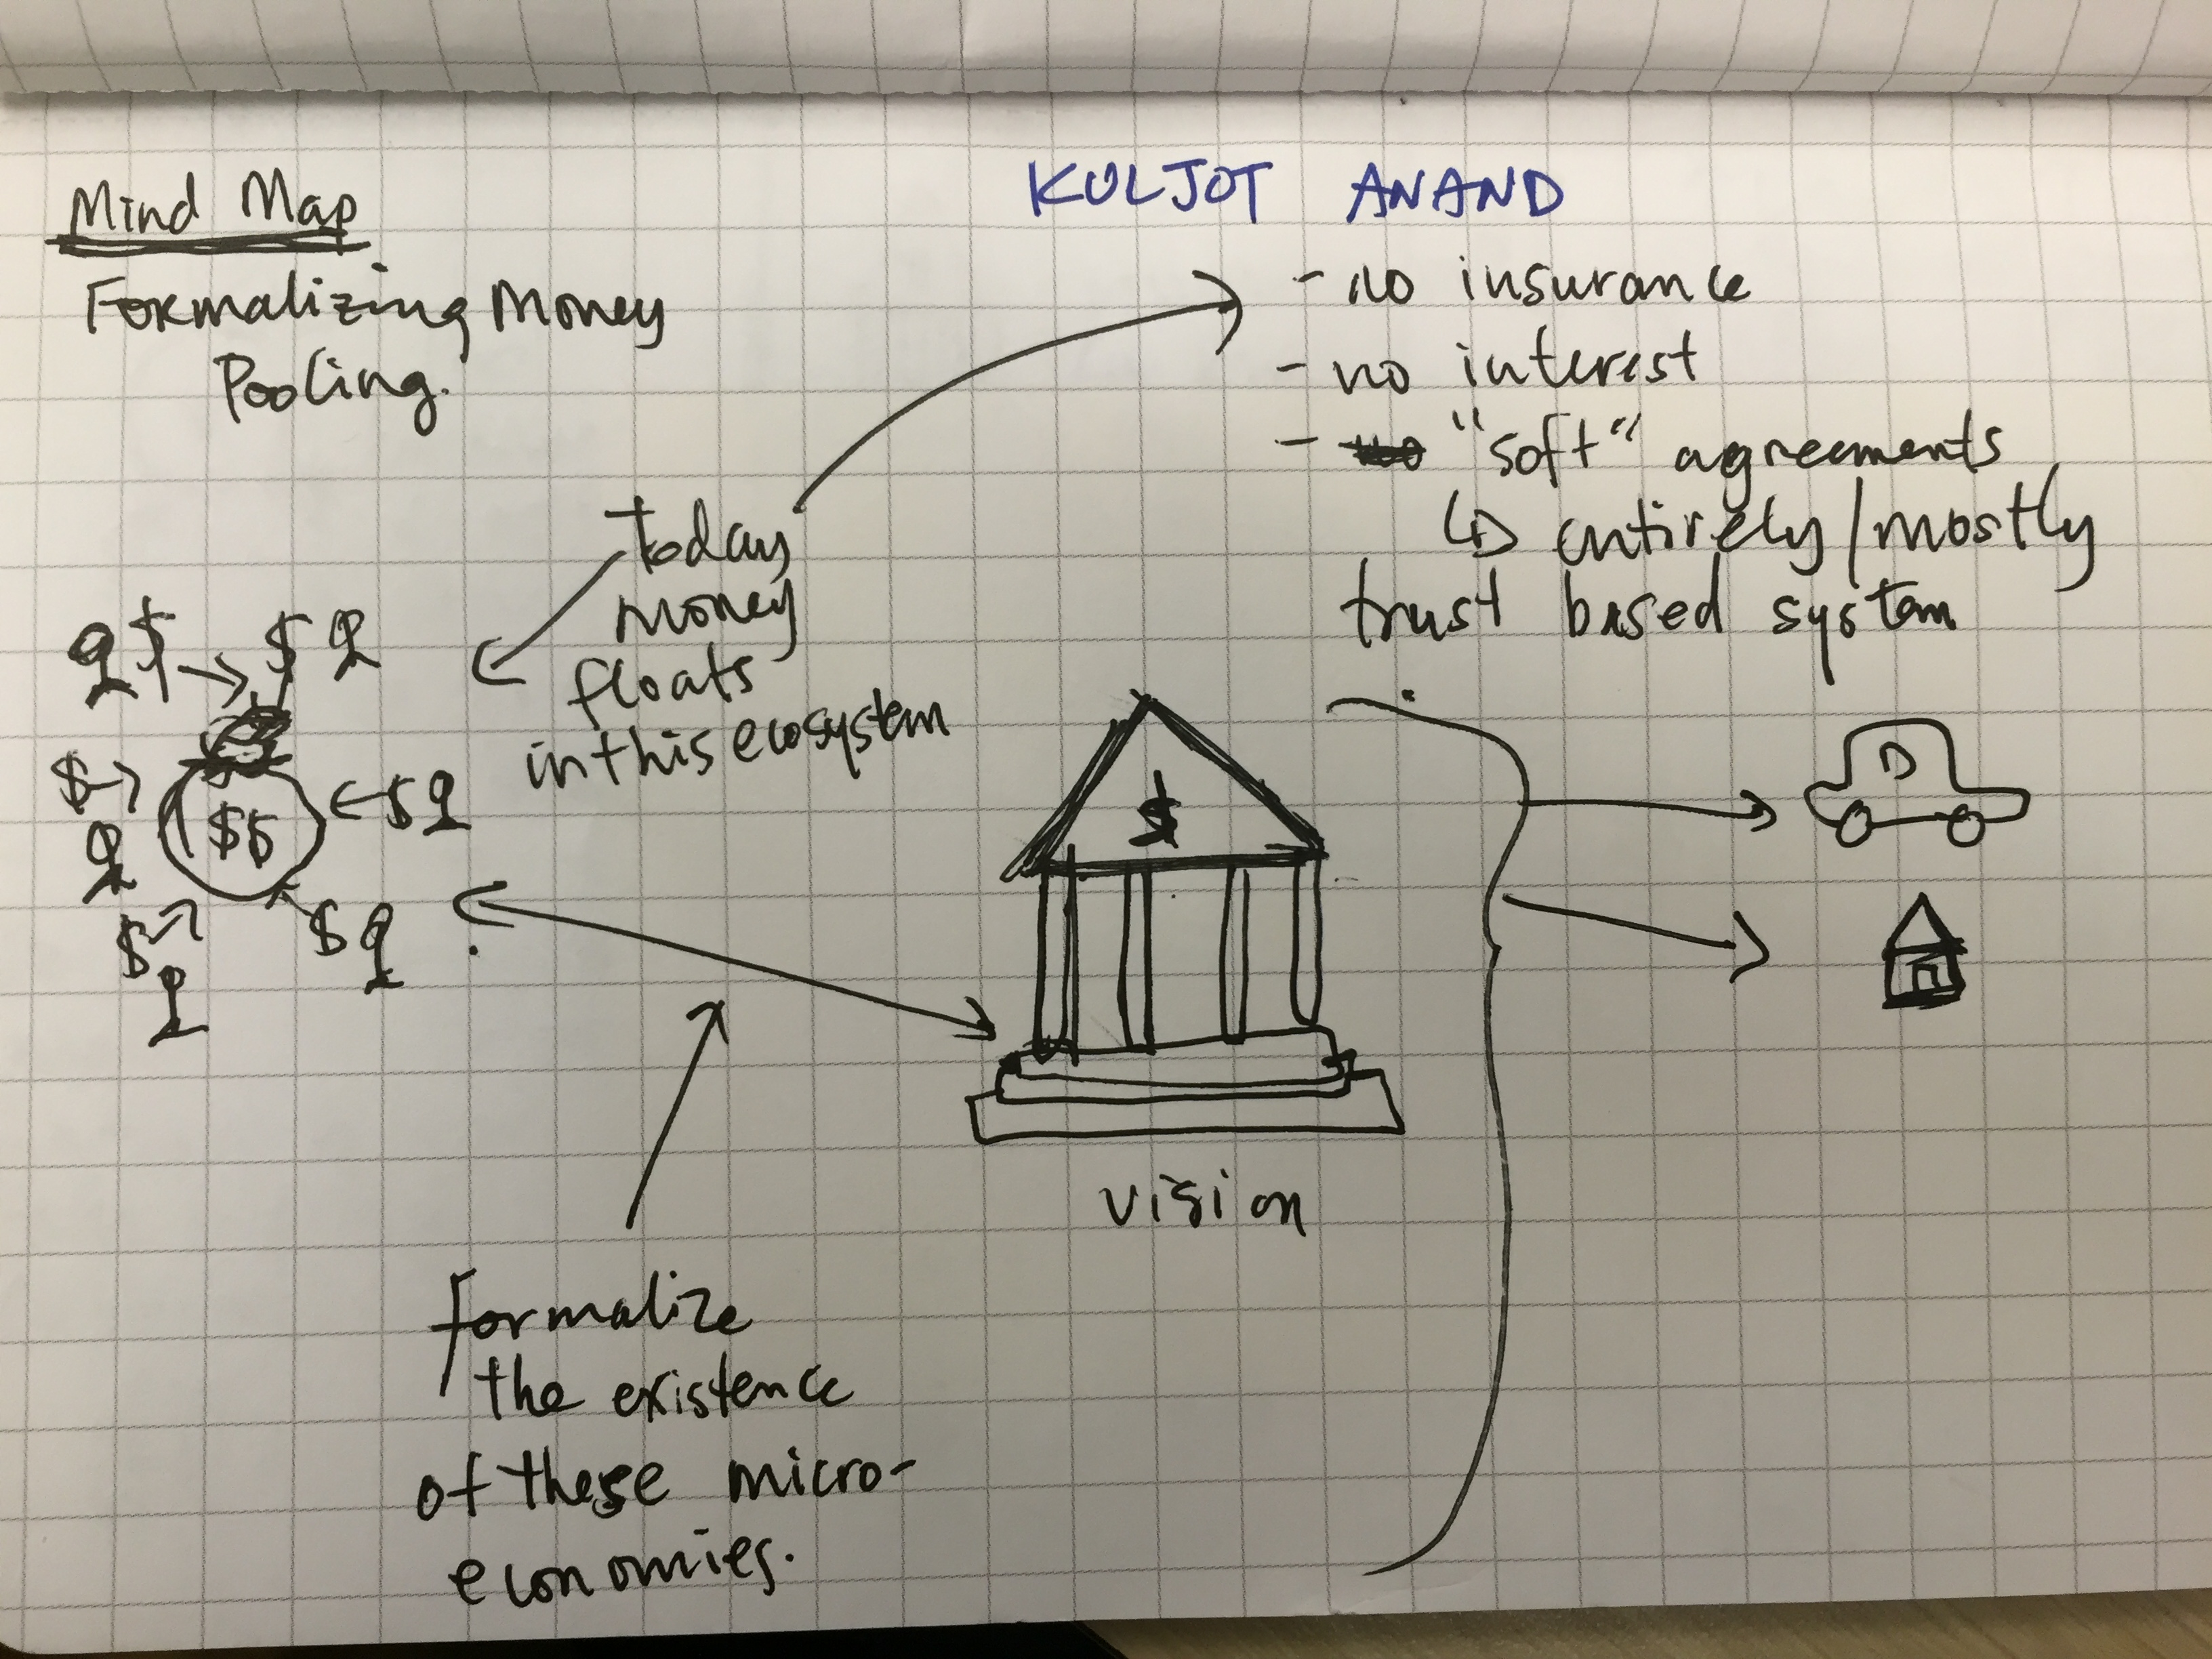 Mind Map
Formalizing Money
Pooling.
KULJOT ANAND
- no insurance
- no interest
- "soft" agreements
↳ entirely/mostly
trust based system
today
money
floats
in this ecosystem
$ $
$ $$ $
$ $
$
vision
formalize
the existence
of these micro-
economies.